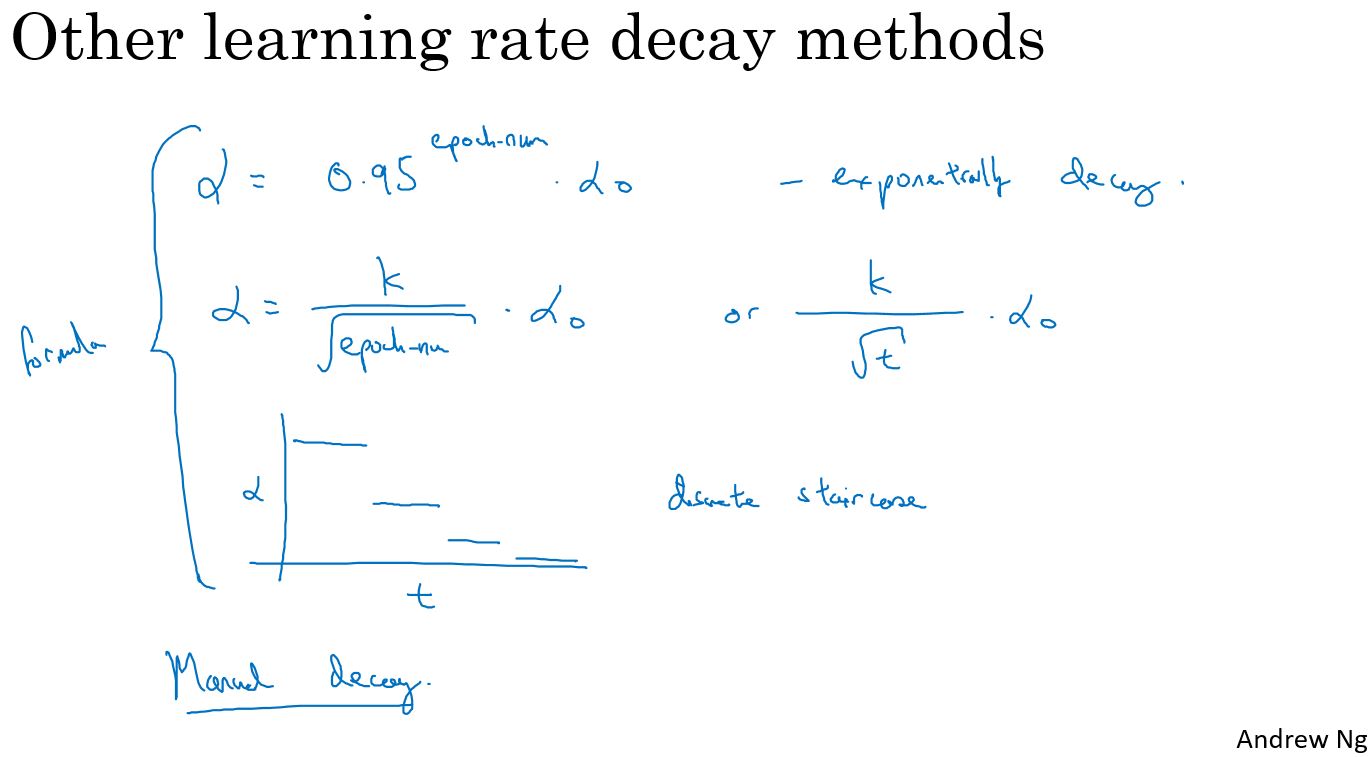 Other learning rate decay methods
α = 0.95^epoch-num · α₀ – exponentially decay.
α = k/√epoch-num · α₀ or k/√t · α₀
formula
α
discrete staircase
t
Manual decay.
Andrew Ng